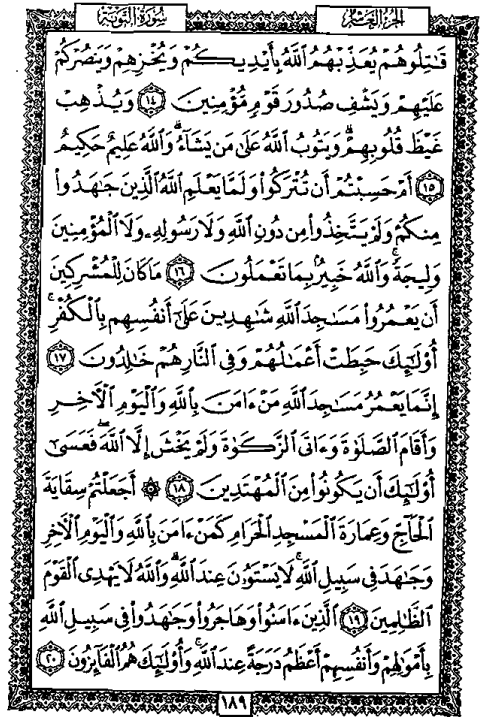 الجزء العاشر سورة التوبة
قَٰتِلُوهُمْ يُعَذِّبْهُمُ ٱللَّهُ بِأَيْدِيكُمْ وَيُخْزِهِمْ وَيَنصُرْكُمْ
عَلَيْهِمْ وَيَشْفِ صُدُورَ قَوْمٍ مُّؤْمِنِينَ ١٤ وَيُذْهِبْ
غَيْظَ قُلُوبِهِمْ ۗ وَيَتُوبُ ٱللَّهُ عَلَىٰ مَن يَشَآءُ ۗ وَٱللَّهُ عَلِيمٌ حَكِيمٌ
١٥ أَمْ حَسِبْتُمْ أَن تُتْرَكُوا۟ وَلَمَّا يَعْلَمِ ٱللَّهُ ٱلَّذِينَ جَٰهَدُوا۟
مِنكُمْ وَلَمْ يَتَّخِذُوا۟ مِن دُونِ ٱللَّهِ وَلَا رَسُولِهِۦ وَلَا ٱلْمُؤْمِنِينَ
وَلِيجَةً ۚ وَٱللَّهُ خَبِيرٌۢ بِمَا تَعْمَلُونَ ١٦ مَا كَانَ لِلْمُشْرِكِينَ
أَن يَعْمُرُوا۟ مَسَٰجِدَ ٱللَّهِ شَٰهِدِينَ عَلَىٰٓ أَنفُسِهِم بِٱلْكُفْرِ ۚ
أُو۟لَٰٓئِكَ حَبِطَتْ أَعْمَٰلُهُمْ وَفِى ٱلنَّارِ هُمْ خَٰلِدُونَ ١٧
إِنَّمَا يَعْمُرُ مَسَٰجِدَ ٱللَّهِ مَنْ ءَامَنَ بِٱللَّهِ وَٱلْيَوْمِ ٱلْءَاخِرِ
وَأَقَامَ ٱلصَّلَوٰةَ وَءَاتَى ٱلزَّكَوٰةَ وَلَمْ يَخْشَ إِلَّا ٱللَّهَ ۖ فَعَسَىٰٓ
أُو۟لَٰٓئِكَ أَن يَكُونُوا۟ مِنَ ٱلْمُهْتَدِينَ ١٨ ۞ أَجَعَلْتُمْ سِقَايَةَ
ٱلْحَآجِّ وَعِمَارَةَ ٱلْمَسْجِدِ ٱلْحَرَامِ كَمَنْ ءَامَنَ بِٱللَّهِ وَٱلْيَوْمِ ٱلْءَاخِرِ
وَجَٰهَدَ فِى سَبِيلِ ٱللَّهِ ۚ لَا يَسْتَوُۥنَ عِندَ ٱللَّهِ ۗ وَٱللَّهُ لَا يَهْدِى ٱلْقَوْمَ
ٱلظَّٰلِمِينَ ١٩ ٱلَّذِينَ ءَامَنُوا۟ وَهَاجَرُوا۟ وَجَٰهَدُوا۟ فِى سَبِيلِ ٱللَّهِ
بِأَمْوَٰلِهِمْ وَأَنفُسِهِمْ أَعْظَمُ دَرَجَةً عِندَ ٱللَّهِ ۚ وَأُو۟لَٰٓئِكَ هُمُ ٱلْفَآئِزُونَ ٢٠
١٨٩